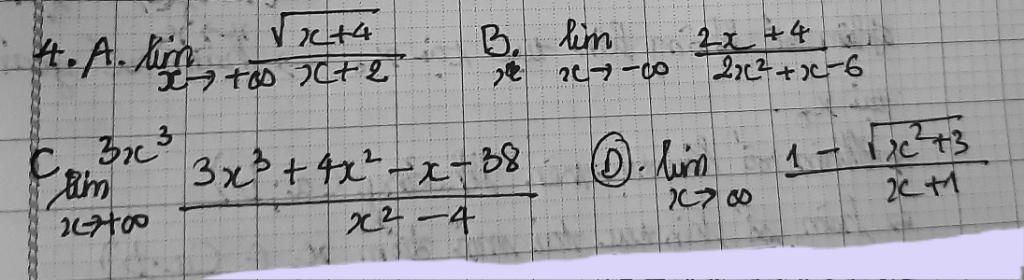 4. A. lim x→+∞ √(x+4) / (x+2) B. lim x→-∞ (2x+4) / (2x²+x-6)
C. lim x→+∞ 3x³ (3x³+4x²-x-38) / (x²-4) D. lim x→∞ (1-√(x²+3)) / (x+1)